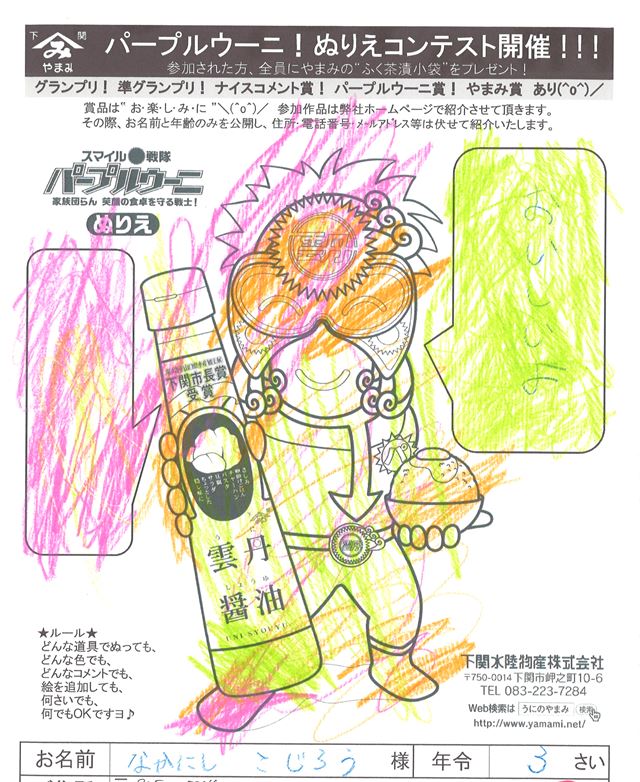 下 関
み
やまみ
パープルウーニ！ぬりえコンテスト開催！！！
参加された方、全員にやまみの“ふく茶漬小袋”をプレゼント！
グランプリ！ 準グランプリ！ ナイスコメント賞！ パープルウーニ賞！ やまみ賞 あり(^o^)／
賞品は“お・楽・し・み・に ”＼(^o^)／ 参加作品は弊社ホームページで紹介させて頂きます。
その際、お名前と年齢のみを公開し、住所・電話番号・メールアドレス等は伏せて紹介いたします。
スマイル●戦隊
パープルウーニ
家族団らん 笑顔の食卓を守る戦士！
ぬりえ
おいしいの
下関市長賞
受賞
さしみ
卵かけごはん
チャーハン
パスタ
豆腐
サラダ
ちょっとした
隠し味に
パ
うに
雲丹
しょうゆ
醤油
UNI-SYOUYU
★ルール★
どんな道具でぬっても、
どんな色でも、
どんなコメントでも、
絵を追加しても、
何さいでも、
何でもOKですヨ♪
下関水陸物産株式会社
〒750-0014 下関市岬之町10-6
TEL 083-223-7284
Web検索は うにのやまみ 検索
http://www.yamami.net/
お名前 なかにし こじろう 様 年令 3 さい